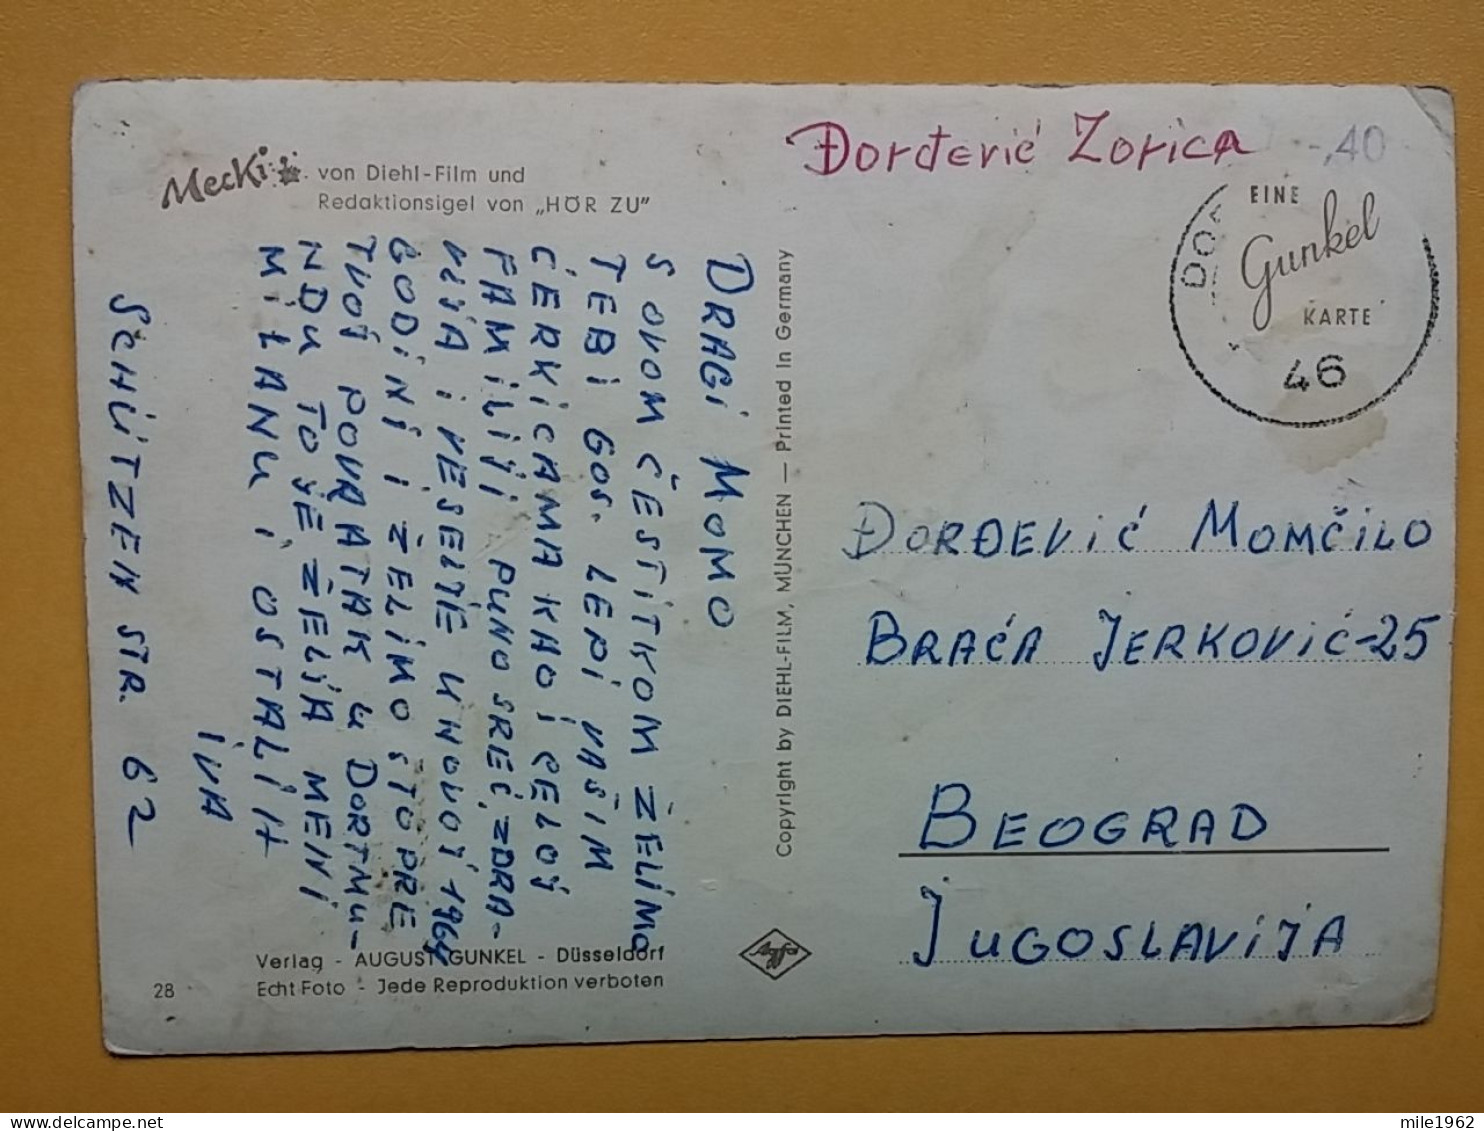 Mecki von Diehl-Film und
Redaktionsigel von „HÖR ZU"
DRAGI MOMO
S OVOM ČESTITKOM ŽELIMO
TEBI GOS. LEPI VAŠIM
ĆERKICAMA KAO I CELOJ
FAMILIJI PUNO SREĆ, ZDRA-
VLJA I VESELJE U NOVOJ 1964
GODINI I ŽELIMO ŠTO PRE
TVOJ POVRATAK U DORTMU-
NDU TO JE ŽELJA MENI
MILANU I OSTALIH
IVA
SCHÜTZEN STR. 62
Verlag - AUGUST GUNKEL - Düsseldorf
Echt Foto - Jede Reproduktion verboten
28
Copyright by DIEHL-FILM, MÜNCHEN — Printed in Germany
Agfa
Đorđević Zorica
-,40
EINE
Gunkel
KARTE
DOR
46
ĐORĐEVIĆ MOMČILO
BRAĆA JERKOVIĆ-25
BEOGRAD
JUGOSLAVIJA
mile1962